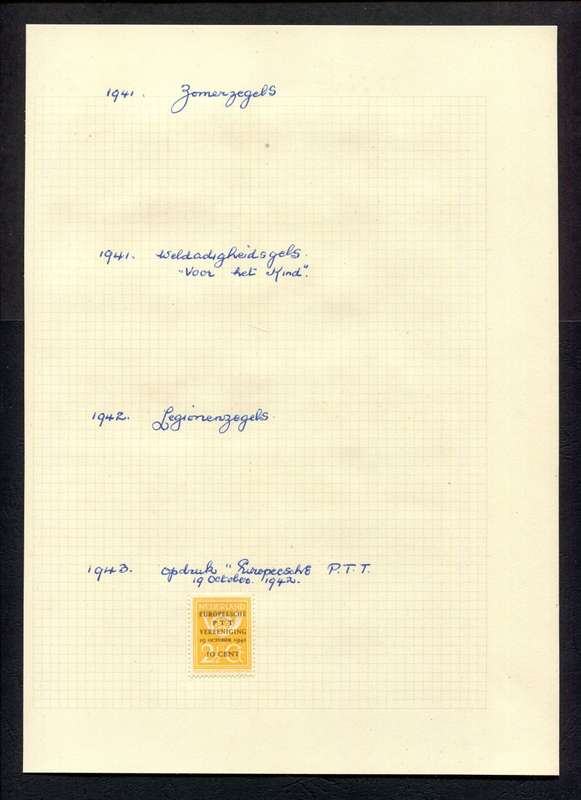 1941. Zomerzegels
1941. Weldadigheidsgels.
"Voor het Kind".
1942. Legioenzegels.
1943. opdruk "Europeesche P.T.T.
19 October. 1942.
NEDERLAND
EUROPEESCHE
P T T
VEREENIGING
19 OCTOBER 1942
10 CENT